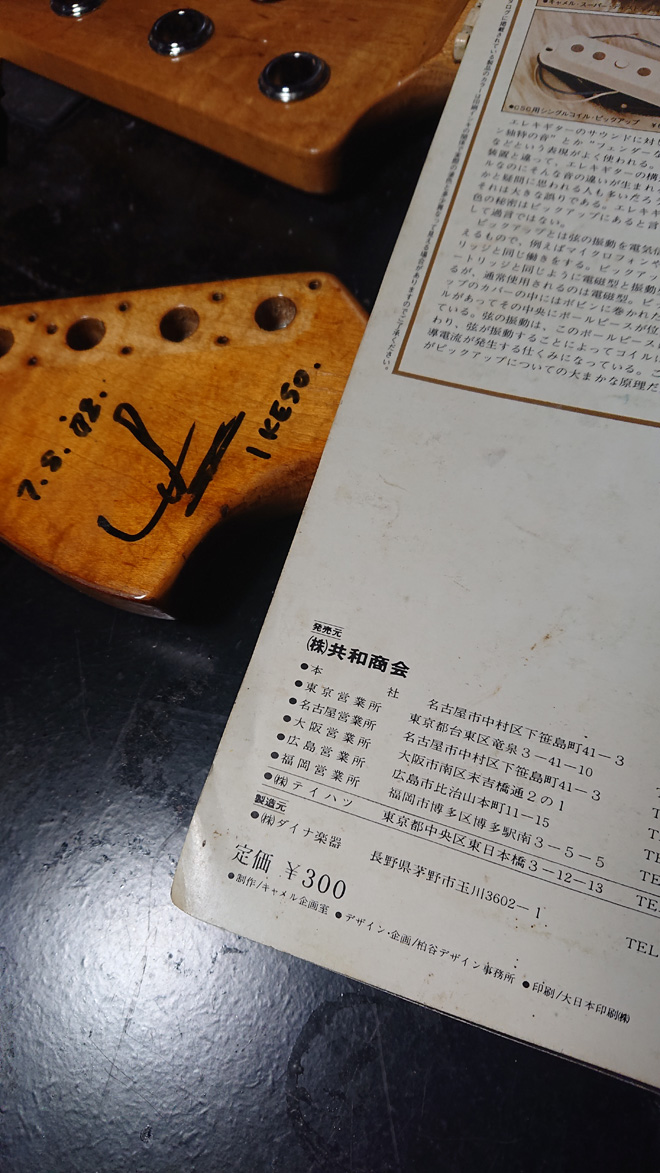 ●キャメル・スーパー
●CSC用シングルコイル・ピックアップ
エレキギターのサウンドに対し
ン独特の音”とか“フェンダーな
などという表現がよく使われる。
装置と違って、エレキギターの構
ルなのにそんな音の違いが生まれ
かと疑問に思われる人も多いだろ
それは大きな誤りである。エレキギ
色の秘密はピックアップにあると言
して過言ではない。
ピックアップとは弦の振動を電気信
えるもので、例えばマイクロフォンや
リッジと同じ働きをする。ピックアッ
ートリッジと同じように電磁型と振動
るが、通常使用されるのは電磁型。ピッ
ップのカバーの中にはボビンに巻かれた
ルがあってその中央にポールピースが位
ている。弦の振動は、このポールピース
わり、弦が振動することによってコイルに
導電流が発生する仕くみになっている。こ
がピックアップについての大まかな原理だ
7.8.'82.
IKESO.
発売元
(株)共和商会
●本社 名古屋市中村区下笹島町41−3
●東京営業所 東京都台東区竜泉3−41−10
●名古屋営業所 名古屋市中村区下笹島町41−3
●大阪営業所 大阪市南区末吉橋通2の1
●広島営業所 広島市比治山本町11−15
●福岡営業所 福岡市博多区博多駅南3−5−5
●(株)テイハツ 東京都中央区東日本橋3−12−13 TE
製造元
●(株)ダイナ楽器 長野県茅野市玉川3602−1 TEL
定価 ¥300
●制作/キャメル企画室 ●デザイン・企画/柏谷デザイン事務所 ●印刷/大日本印刷(株)